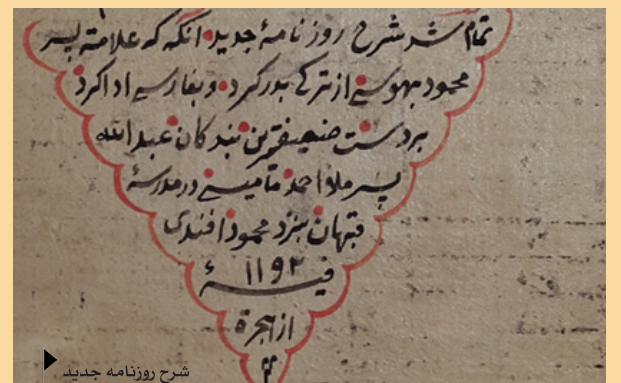 تمام شد شرح روزنامهٔ جدید انکه که علامته پسر
محمود بهوسنے از ترکے بدر کرد و بفارسے ادا کرد
بردست ضعیفترین بندکان عبدالله
پسر ملا احمد مامیسے در مدرسهٔ
قبهان بنزد محمود افندی
فی سنهٔ ۱۱۹۲
از هجرة
م
شرح روزنامه جدید